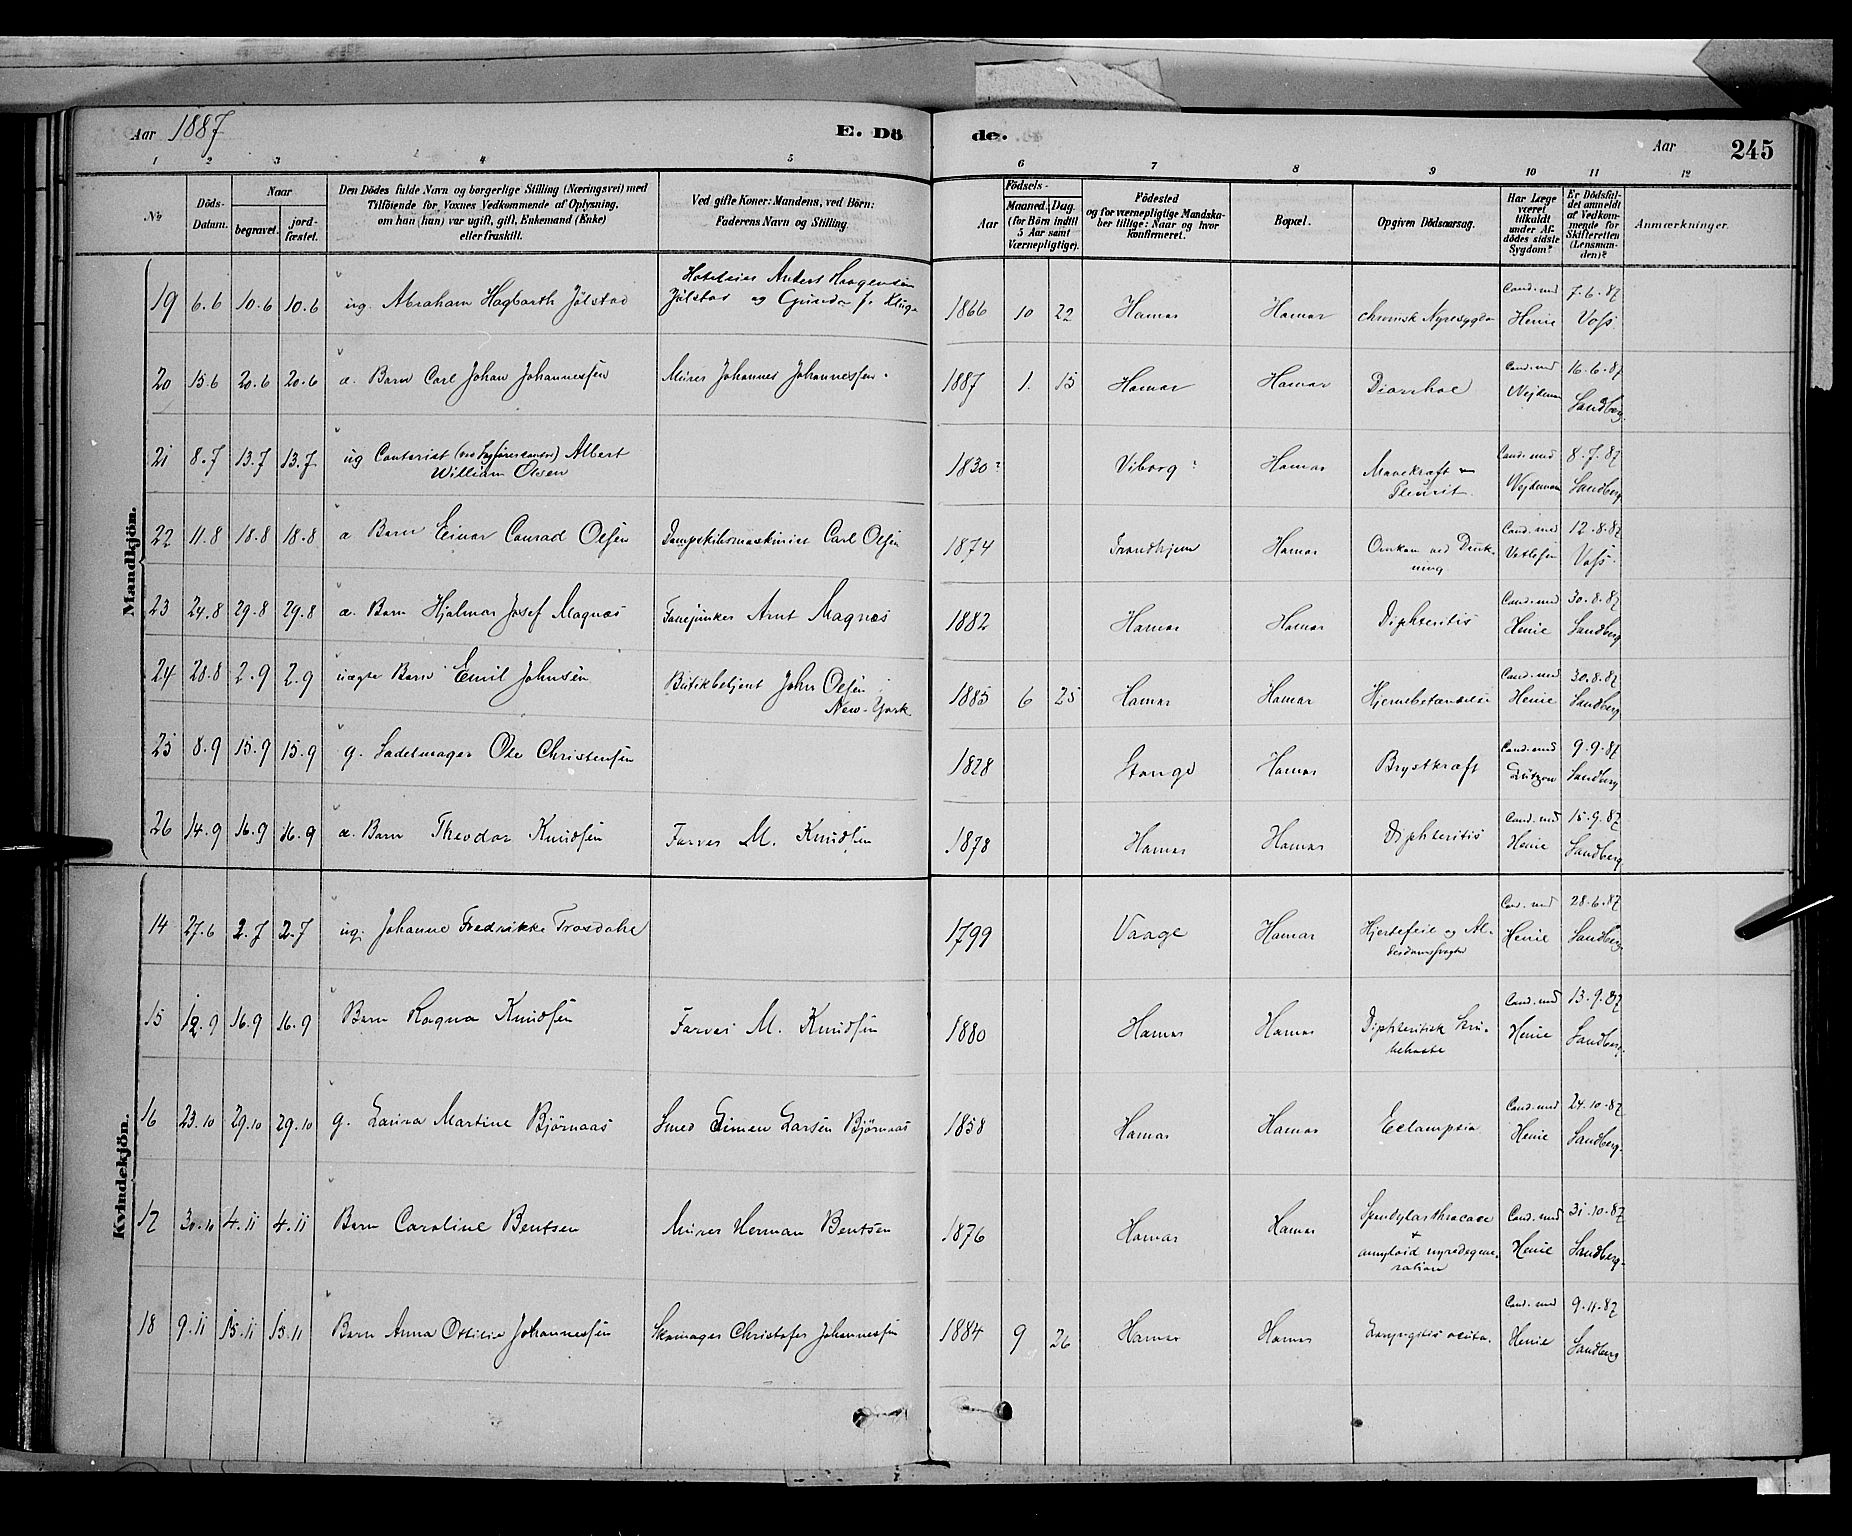 Aar 1887
E. Dö
de.
Aar
245
1 2 3 4 5 6 7 8 9 10 11 12
No
Döds-Datum.
Naar
begravet.
jord-fæstet.
Den Dödes fulde Navn og borgerlige Stilling (Næringsvei) med
Tilföiende for Voxnes Vedkommende af Oplysning,
om han (hun) var ugift, gift, Enkemand (Enke)
eller fraskilt.
Ved gifte Koner: Mandens, ved Börn:
Faderens Navn og Stilling.
Födsels-
Aar
Maaned. Dag.
(for Börn indtil
5 Aar samt
Værnepligtige).
Födested
og for værnepligtige Mandska-
ber tillige: Naar og hvor
konfirmeret.
Bopæl.
Opgiven Dödsaarsag.
Har Læge
været
tilkaldt
under Af-
dödes sidste
Sygdom?
Er Dödsfal-
det anmeldt
af Vedkom-
mende for
Skifteretten
(Lensman-
den)?
Anmærkninger.
Mandkjön.
19 6.6 10.6 10.6 ug. Abraham Hagbarth Jølstad
Anders Haagensen
Jølstad og
1866 10 22 Hamar Hamar chronisk Nyresygdom
Cand. med Henie
7.6.87 Voss
20 15.6 20.6 20.6 æ. Barn Carl Johan Johannessen
Murer Johannes Johannessen.
1887 1. 15 Hamar Hamar Diarrhoe
Cand. med
16.6.87 Sandberg.
21 8.7 13.7 13.7 ug Contorist Albert
William Olsen
1830? Viborg? Hamar Mavekræft
Pleurit.
Cand. med
8.7.87 Sandberg
22 11.8 18.8 18.8 æ Barn Einar Conrad Olsen
Dampskibsmaskinist Carl Olsen
1874 Trondhjem Hamar Omkom ved Druk-
ning
Cand. med
12.8.87 Voss.
23 24.8 29.8 29.8 æ. Barn Hjalmar Josef Magnæs
Fanejunker Arnt Magnæs
1882 Hamar Hamar Diphteritis
Cand. med Henie
30.8.87 Sandberg
24 28.8 2.9 2.9 uægte Barn Emil Johnsen
Butikbetjent John Olsen
New-York
1885 6 25 Hamar Hamar Hjernebetændelse
Cand. med Henie
30.8.87 Sandberg
25 8.9 15.9 15.9 g. Sadelmager Ole Christensen
1828 Stange Hamar Brystkræft
Cand. med Lützow
9.9.87 Sandberg
26 14.9 16.9 16.9 æ. Barn Theodor Knudsen
Farver M. Knudsen
1878 Hamar Hamar Diphteritis
Cand. med Henie
15.9.87 Sandberg.
Kvindekjön.
14 27.6 2.7 2.7 ug. Johanne Fredrikke Trosdahl
1799 Vaage Hamar Hjertefeil og Al-
derdomssvaghed
Cand. med Henie
28.6.87 Sandberg
15 12.9 16.9 16.9 Barn Ragna Knudsen
Farver M. Knudsen
1880 Hamar Hamar Diphteritisk Stru-
behoste
Cand. med Henie
13.9.87 Sandberg.
16 23.10 29.10 29.10 g. Laura Martine Bjørnaas
Smed Simen Larsen Bjørnaas
1858 Hamar Hamar Eclampsia
Cand. med Henie
24.10.87 Sandberg.
17 30.10 4.11 4.11 Barn Caroline Bentsen
Murer Herman Bentsen
1876 Hamar Hamar Spondylarthrocace
+
amyloid nyredegene-
ration
Cand. med Henie
31.10.87 Sandberg.
18 9.11 15.11 15.11 Barn Anna Ottilie Johannessen
Skomager Christofer Johannessen
1884 9 26 Hamar Hamar Laryngitis acuta.
Cand. med Henie
9.11.87 Sandberg